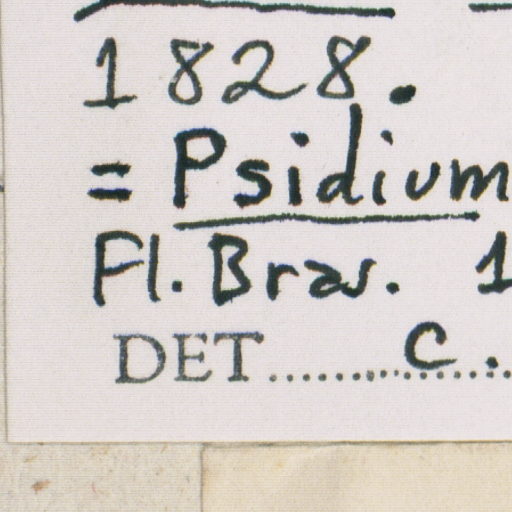 1828.
= Psidium
Fl. Bras. 1
DET ........ C .